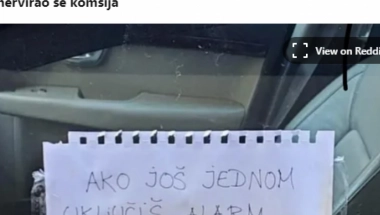 nervirao se komšija
View on Reddi
AKO JOŠ JEDNOM
UKLJUČIŠ ALARM